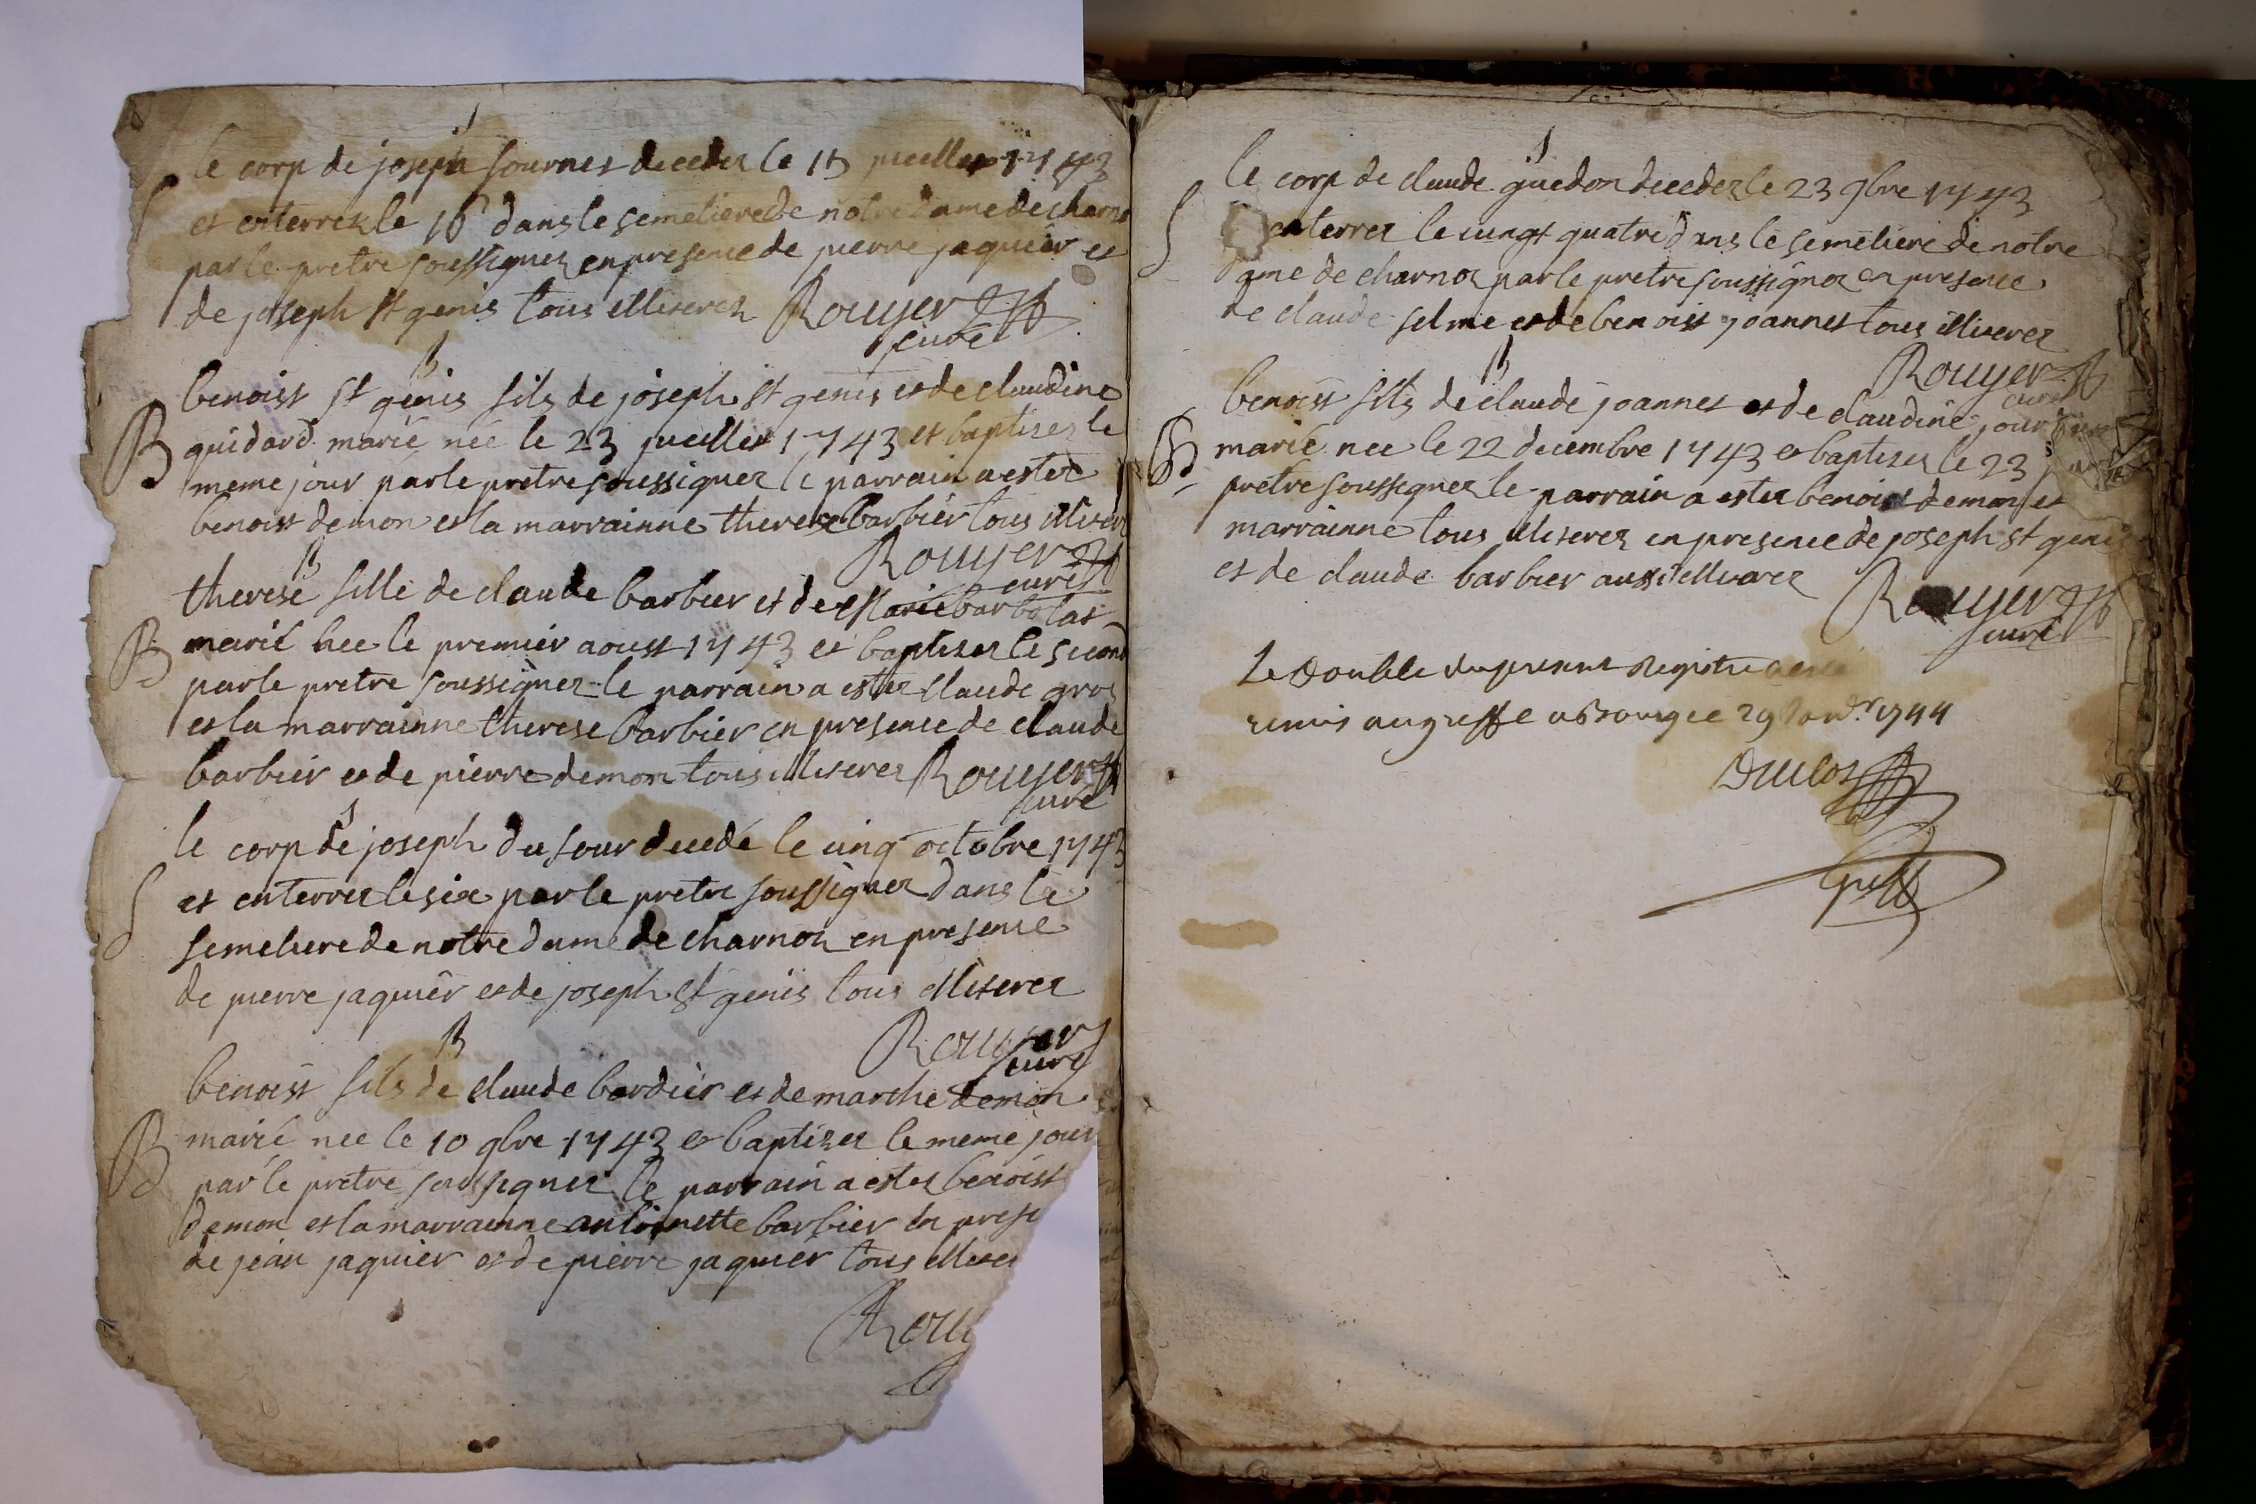 S
le corp de joseph fournet decedez le 15 jueillet 1743
S et enterrez le 16 dans le semetiere de notre dame de charno
par le pretre soussignez en presence de pierre jaquier et
de joseph st genis tous illiterez Rouyer
curé
B
benoist st genis fils de joseph st genis et de claudine
B guidard marié née le 23 jueillet 1743 et baptisez le
meme jour par le pretre soussignez le parrain a estez
benoist demon et la marrainne therese barbier tous illiterez
Rouyer
curé
B
therese fille de claude barbier et de Marie barbolat
B marié nee le premier aoust 1743 et baptisez le second
par le pretre soussignez le parrain a estez claude groz
et la marrainne therese barbier en presence de claude
barbier et de pierre demon tous illiterez Rouyer
curé
S
le corp de joseph dufour decedé le cinq octobre 1743
S et enterrez le six par le pretre soussignez dans le
semetiere de notre dame de charnoz en presence
de pierre jaquier et de joseph st genis tous illiterez
Rouyer
curé
B
benoist fils de claude bardier et de marthe demon
B marié nee le 10 9bre 1743 et baptizez le meme jour
par le pretre soussignez le parrain a estez benoist
demon et la marrainne antoinette barbier en prese
de jean jaquier et de pierre jaquier tous illiter
Rouy
S
le corp de claude guedon decedez le 23 9bre 1743
S enterrez le vingt quatre dans le semetiere de notre
dame de charnoz par le pretre soussignez en presence
de claude selme et de benoist joannet tous illiterez
Rouyer
curé
B
benoist fils de claude joannet et de claudine
B marié nee le 22 decembre 1743 et baptisez le 23
pretre soussignez le parrain a estez benoist demon et
marrainne tous illiterez en presence de joseph st genis
et de claude barbier aussi illiterez
Rouyer
curé
Le double du present Registre a esté
remis au greffe a Bourg ce 29 Janv.r 1744
Duclos
greff